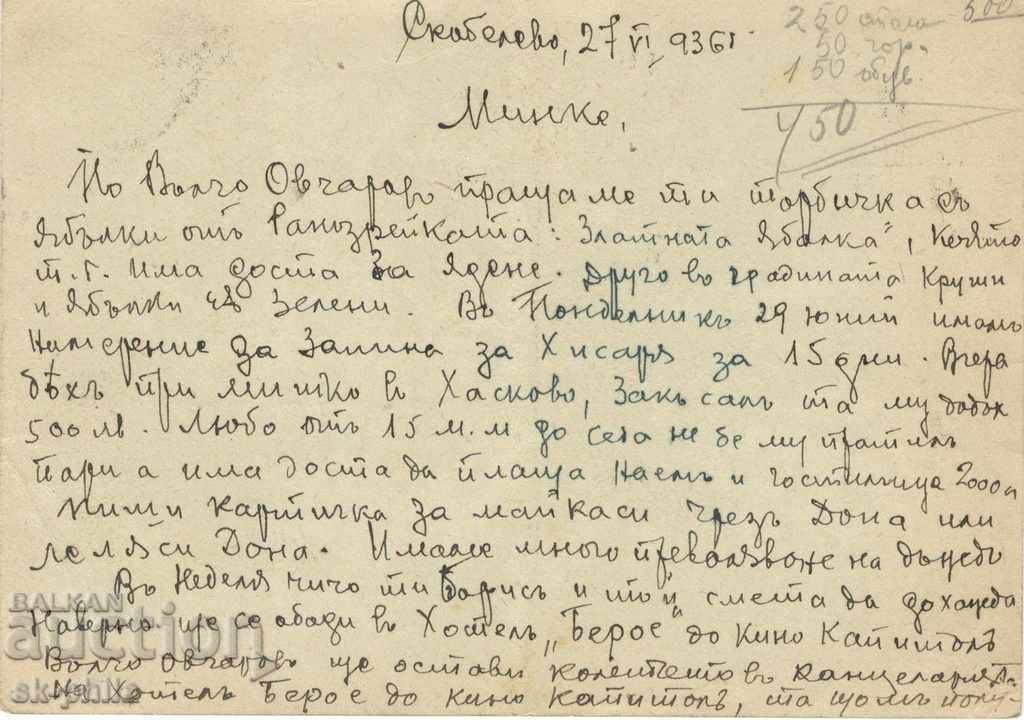 Скобелево, 27 VI 936 г.
500
250 стала
50 гор.
150 обув.
450
Минке,
По Вълчо Овчаровъ пращаме ти торбичка съ
ябълки отъ Ранозрейката: Златната ябалка",
т.г. има доста за ядене. Друго въ градината Круши
и ябълки са зелени. Въ Понделникъ 29 юний имамъ
Намерение да Замина за Хисаря за 15 дни. Вчера
бѣхъ при Митко в Хасково, Закъсалъ та му дадох
500 лв. Любо отъ 15 м.м до сега не бе му пратилъ
пари а има доста да плаща Наемъ и гостилница 2000
Пиши картичка за майкаси чрезъ Дона или
леляси Дона. Имаме много превалявоне на дъждъ
Въ Неделя чичо ти Борисъ и той смета да дохажда
Наверно ще се обади в Хотелъ „Берое" до Кино Капитолъ
Вълчо Овчаровъ ще остави колетчето въ Канцеларията
На Хотелъ Берое до кино Капитолъ, та щомъ
BALKAN
auction
sk-phila